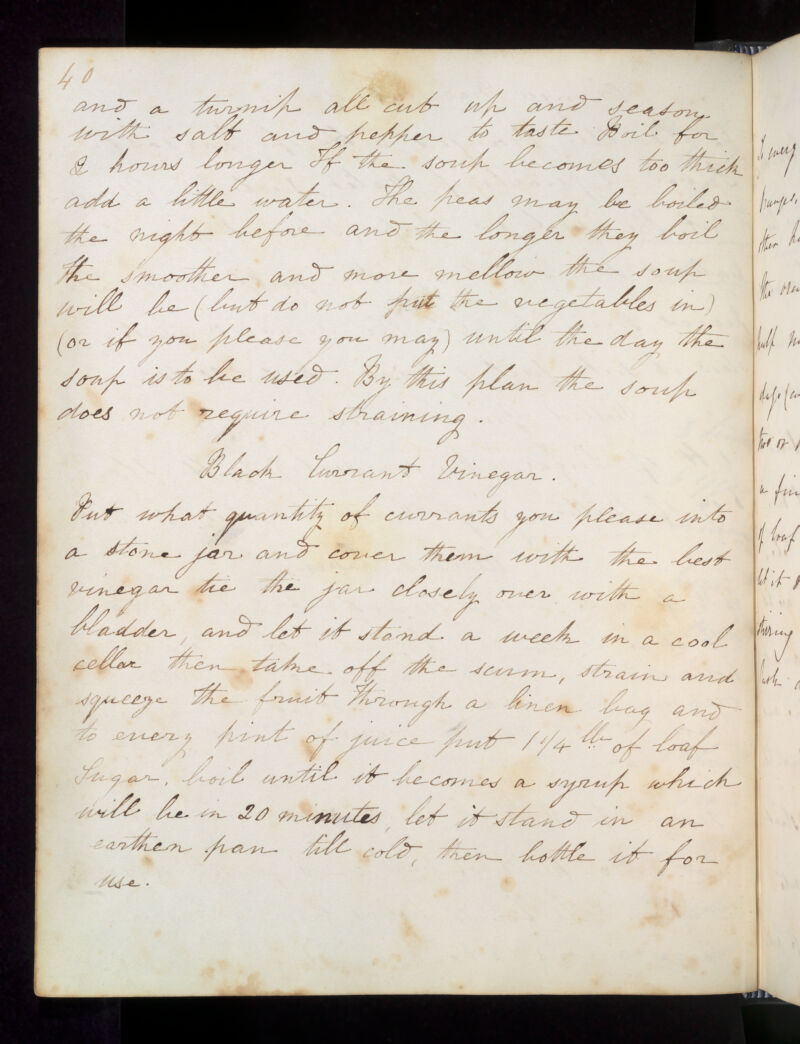 40
and a turnip all cut up and season
with salt and pepper to taste Boil for
2 hours longer If the soup becomes too thick
add a little water. The peas may be boiled
the night before and the longer they boil
the smoother and more mellow the soup
will be (but do not put the vegetables in)
(or if you please you may) until the day the
soup is to be used. By this plan the soup
does not require straining.
Black Currant Vinegar.
Put what quantity of currants you please into
a stone jar and cover them with the best
vinegar tie the jar closely over with a
bladder, and let it stand a week in a cool
cellar then take off the scum, strain and
squeeze the fruit through a linen bag and
to every pint of juice put 1 1/4 lb of loaf
Sugar, boil until it becomes a syrup which
will be in 20 minutes, let it stand in an
earthen pan till cold, then bottle it for
use.
To every
then
the
half
two or
a fin
of loaf
let it